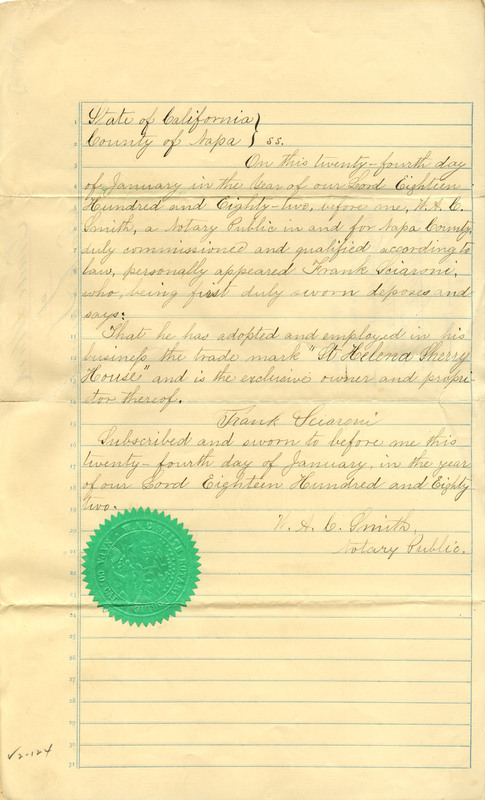 State of California }
County of Napa } ss.
On this twenty-fourth day
of January in the Year of our Lord Eighteen
Hundred and Eighty-two, before me, N. A. C.
Smith, a Notary Public in and for Napa County,
duly commissioned and qualified according to
law, personally appeared Frank Sciaroni,
who, being first duly sworn deposes and
says:
That he has adopted and employed in his
business the trade mark "St Helena Sherry
House" and is the exclusive owner and propri
etor thereof.
Frank Sciaroni
Subscribed and sworn to before me this
twenty-fourth day of January, in the year
of our Lord Eighteen Hundred and Eighty
two.
N. A. C. Smith,
Notary Public.
√2-124